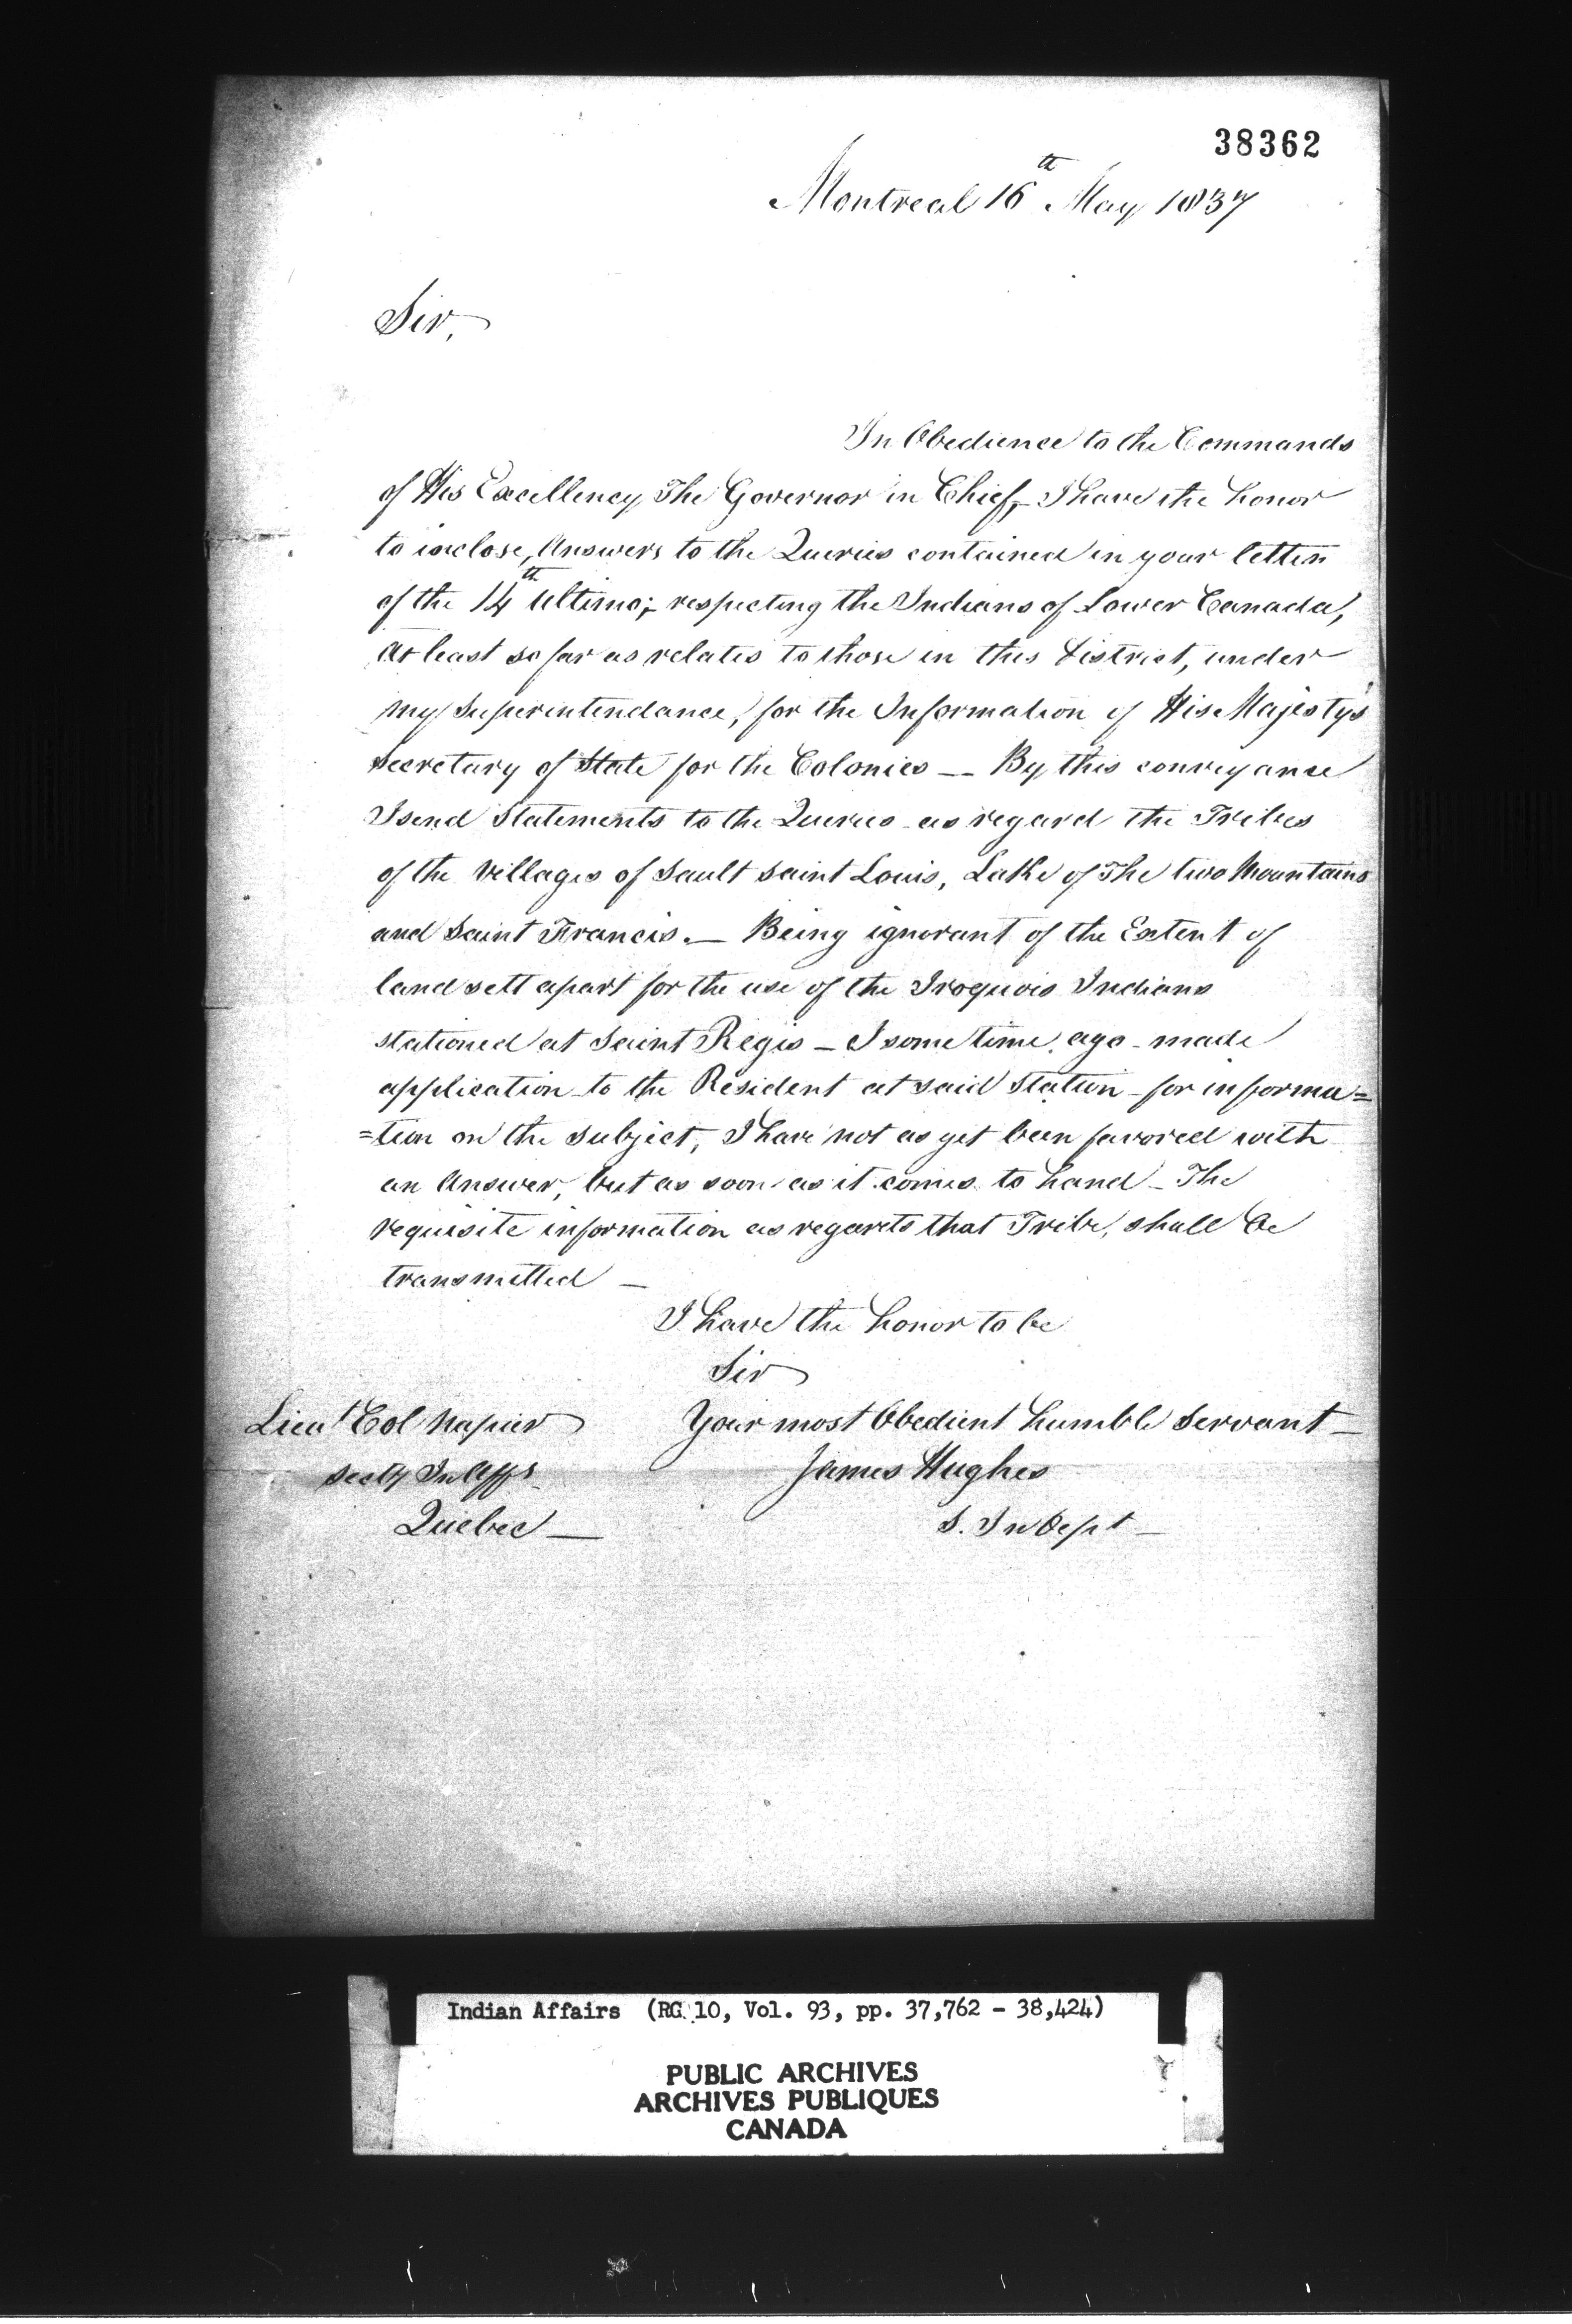 38362
Montreal 16th May 1837
Sir,
In Obedience to the Commands
of His Excellency The Governor in Chief,- I have the honor
to inclose, Answers to the Queries contained in your letter
of the 14th Ultimo;- respecting the Indians of Lower Canada,
At least so far as relates to those in this District, under
my Superintendance, for the Information of His Majesty's
Secretary of State for the Colonies -- By this conveyance
I send Statements to the Queries as regard the Tribes
of the Villages of Sault Saint Louis, Lake of The two Mountains
and Saint Francis. — Being ignorant of the Extent of
land sett apart for the use of the Iroquois Indians
stationed at Saint Regis — I some time ago - made
application to the Resident at said Station - for informa=
=tion on the subject, I have not as yet been favored with
an Answer, but as soon as it comes to hand - The
requisite information as regards that Tribe, shall be
transmitted —
I have the honor to be
Sir
Your most Obedient humble Servant —
James Hughes
S. In Dept —
Lieut Col Napier
Secty In Affrs
Quebec —
Indian Affairs (RG 10, Vol. 93, pp. 37,762 - 38,424)
PUBLIC ARCHIVES
ARCHIVES PUBLIQUES
CANADA